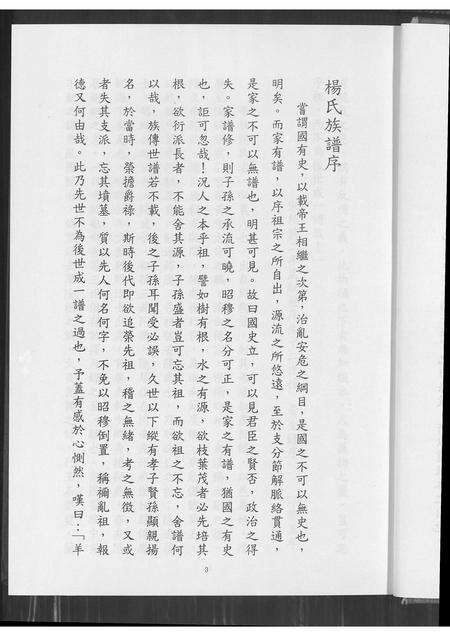 楊氏族譜序
嘗謂國有史，以載帝王相繼之次第，治亂安危之綱目，是國之不可以無史也，
明矣。而家有譜，以序祖宗之所自出，源流之所悠遠，至於支分節解脈絡貫通，
是家之不可以無譜也，明甚可見。故曰國史立，可以見君臣之賢否，政治之得
失。家譜修，則子孫之承流可曉，昭穆之名分可正，是家之有譜，猶國之有史
也，詎可忽哉！況人之本乎祖，譬如樹有根，水之有源，欲枝葉茂者必先培其
根，欲衍派長者，不能舍其源，子孫盛者豈可忘其祖，而欲祖之不忘，舍譜何
以哉，族傳世譜若不載，後之子孫耳聞受必誤，久世以下縱有孝子賢孫顯親揚
名，於當時，榮擔爵祿，斯時後代即欲追榮先祖，稽之無緒，考之無徵，又或
者失其支派，忘其墳墓，質以先人何名何字，不免以昭穆倒置，稱禰亂祖，報
德又何由哉。此乃先世不為後世成一譜之過也，予蓋有感於心惻然，嘆曰：「羊
3